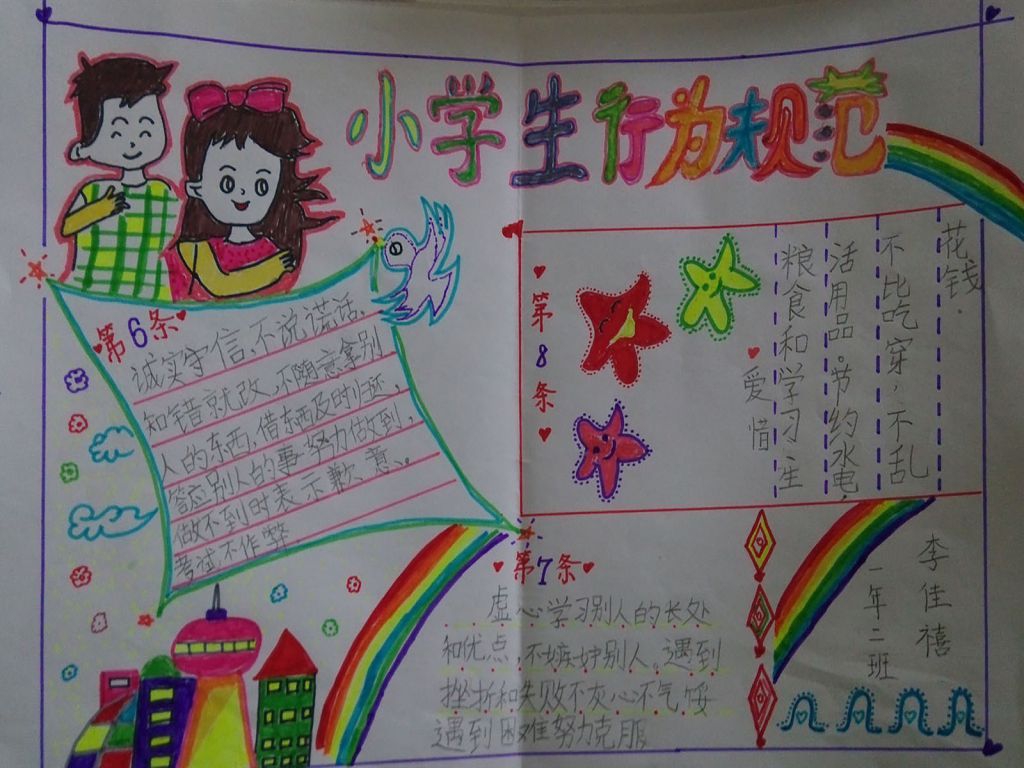 小学生行为规范
第6条
诚实守信、不说谎话、
知错就改,不随意拿别
人的东西,借东西及时归还,
答应别人的事努力做到,
做不到时表示歉意。
考试不作弊。
第8条
爱惜
粮食和学习、生
活用品。节约水电,
不比吃穿,不乱
花钱.
第7条
虚心学习别人的长处
和优点,不嫉妒别人。遇到
挫折和失败不灰心不气馁
遇到困难努力克服
李佳禧
一年二班